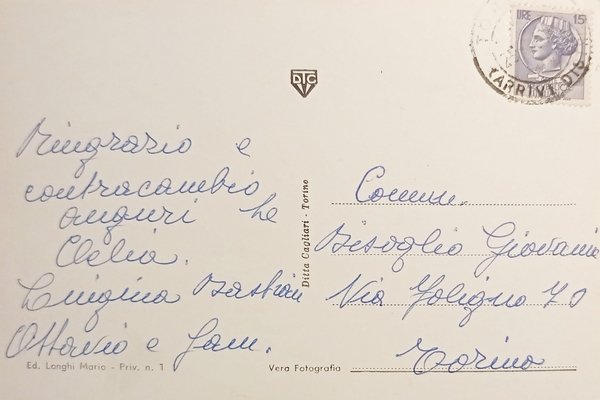 LIRE 15
ARRIVI
DTC
Ringrazio e
contracambio
auguri
Clelia.
Luigina Bastian
Ottavio e Fam.
Ed. Longhi Mario - Priv. n. 1
Ditta Cagliari - Torino
Vera Fotografia
Comm.
Bisoglio Giovanni
Via Foligno 70
Torino